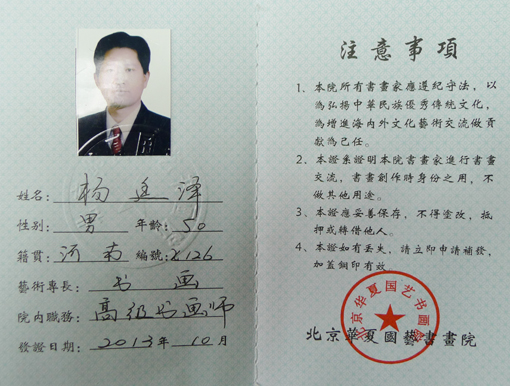 姓名：杨廷泽
性别：男 年齡：50
籍貫：河南 編號：X126
藝術專長：书画
院内職務：高级书画师
發證日期：2013年10月
注意事項
1、本院所有書畫家應遵紀守法，以
為弘揚中華民族優秀傳統文化，
為增進海内外文化藝術交流做貢
獻為己任。
2、本證系證明本院書畫家進行書畫
交流，書畫創作時身份之用，不
做其他用途。
3、本證應妥善保存，不得塗改，抵
押或轉借他人。
4、本證如有丢失，請立即申請補發，
加蓋鋼印有效。
北京华夏国艺书画院
北京華夏國藝書畫院